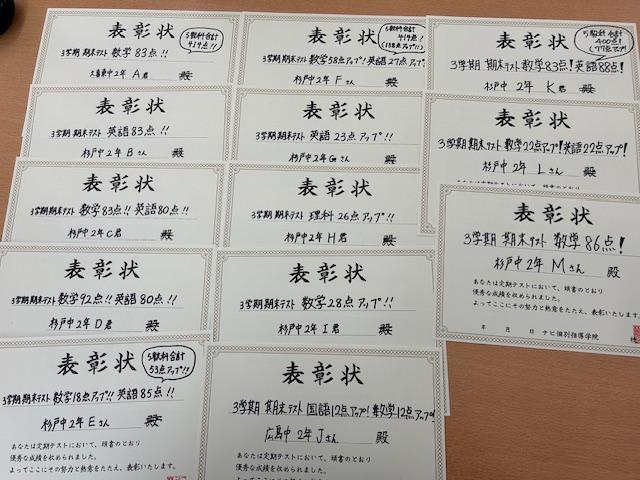 表彰状
5教科合計
414点!!
3学期期末テスト 数学83点!!
大喜東中2年 A君 殿
表彰状
3学期期末テスト 英語83点!!
杉戸中2年 Bさん 殿
表彰状
3学期期末テスト 数学83点!! 英語80点!!
杉戸中2年 C君 殿
表彰状
3学期期末テスト 数学92点!! 英語80点!!
杉戸中2年 D君 殿
表彰状
5教科合計
53点アップ!!
3学期期末テスト 数学18点アップ!! 英語85点!!
杉戸中2年 Eさん 殿
あなたは定期テストにおいて、頭書のとおり
優秀な成績を収められました。
よってここにその努力と熱意をたたえ、表彰いたします。
表彰状
5教科合計
414点!
(138点アップ!!)
3学期期末テスト 数学58点アップ! 英語27点アップ!
杉戸中2年 Fさん 殿
表彰状
3学期期末テスト 英語 23点アップ!!
杉戸中2年 Gさん 殿
表彰状
3学期期末テスト 理科 26点アップ!!
杉戸中2年 H君 殿
表彰状
3学期期末テスト 数学28点アップ!!
杉戸中2年 I君 殿
表彰状
3学期 期末テスト 国語12点アップ! 数学12点アップ!
広島中 2年 Jさん 殿
あなたは定期テストにおいて、頭書のとおり
優秀な成績を収められました。
よってここにその努力と熱意をたたえ、表彰いたします。
表彰状
5教科合計
400点!
(77点アップ)
3学期 期末テスト 数学83点! 英語88点!
杉戸中 2年 K君 殿
表彰状
3学期 期末テスト 数学22点アップ! 英語22点アップ!
杉戸中 2年 Lさん 殿
表彰状
3学期 期末テスト 数学 86点!
杉戸中 2年 Mさん 殿
あなたは定期テストにおいて、頭書のとおり
優秀な成績を収められました。
よってここにその努力と熱意をたたえ、表彰いたします。
年 月 日 ナビ個別指導学院